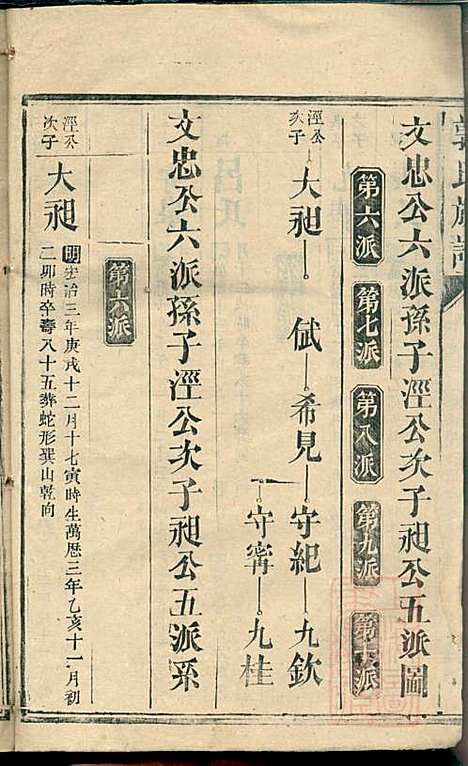 郭氏族譜
文忠公六派孫子涇公次子昶公五派圖
第六派 第七派 第八派 第九派 第十派
涇公次子 大昶 侙 希見 守紀 九欽
守甯 九桂
文忠公六派孫子涇公次子昶公五派系
第六派
涇公次子 大昶 明宏治三年庚戌十二月十七寅時生萬厯三年乙亥十一月初
二卯時卒壽八十五葬蛇形巽山乾向